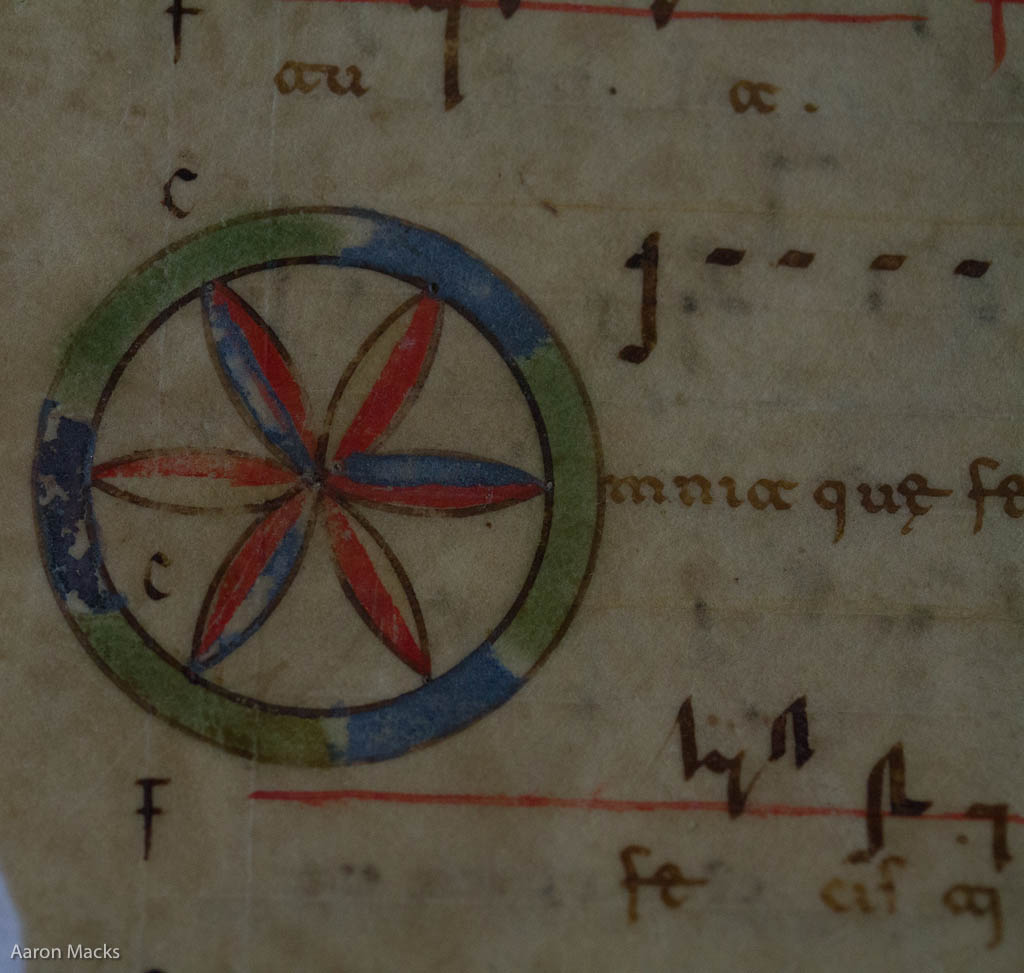 F
au a.
C
Omnia quę fe
C
F
fe
Aaron Macks